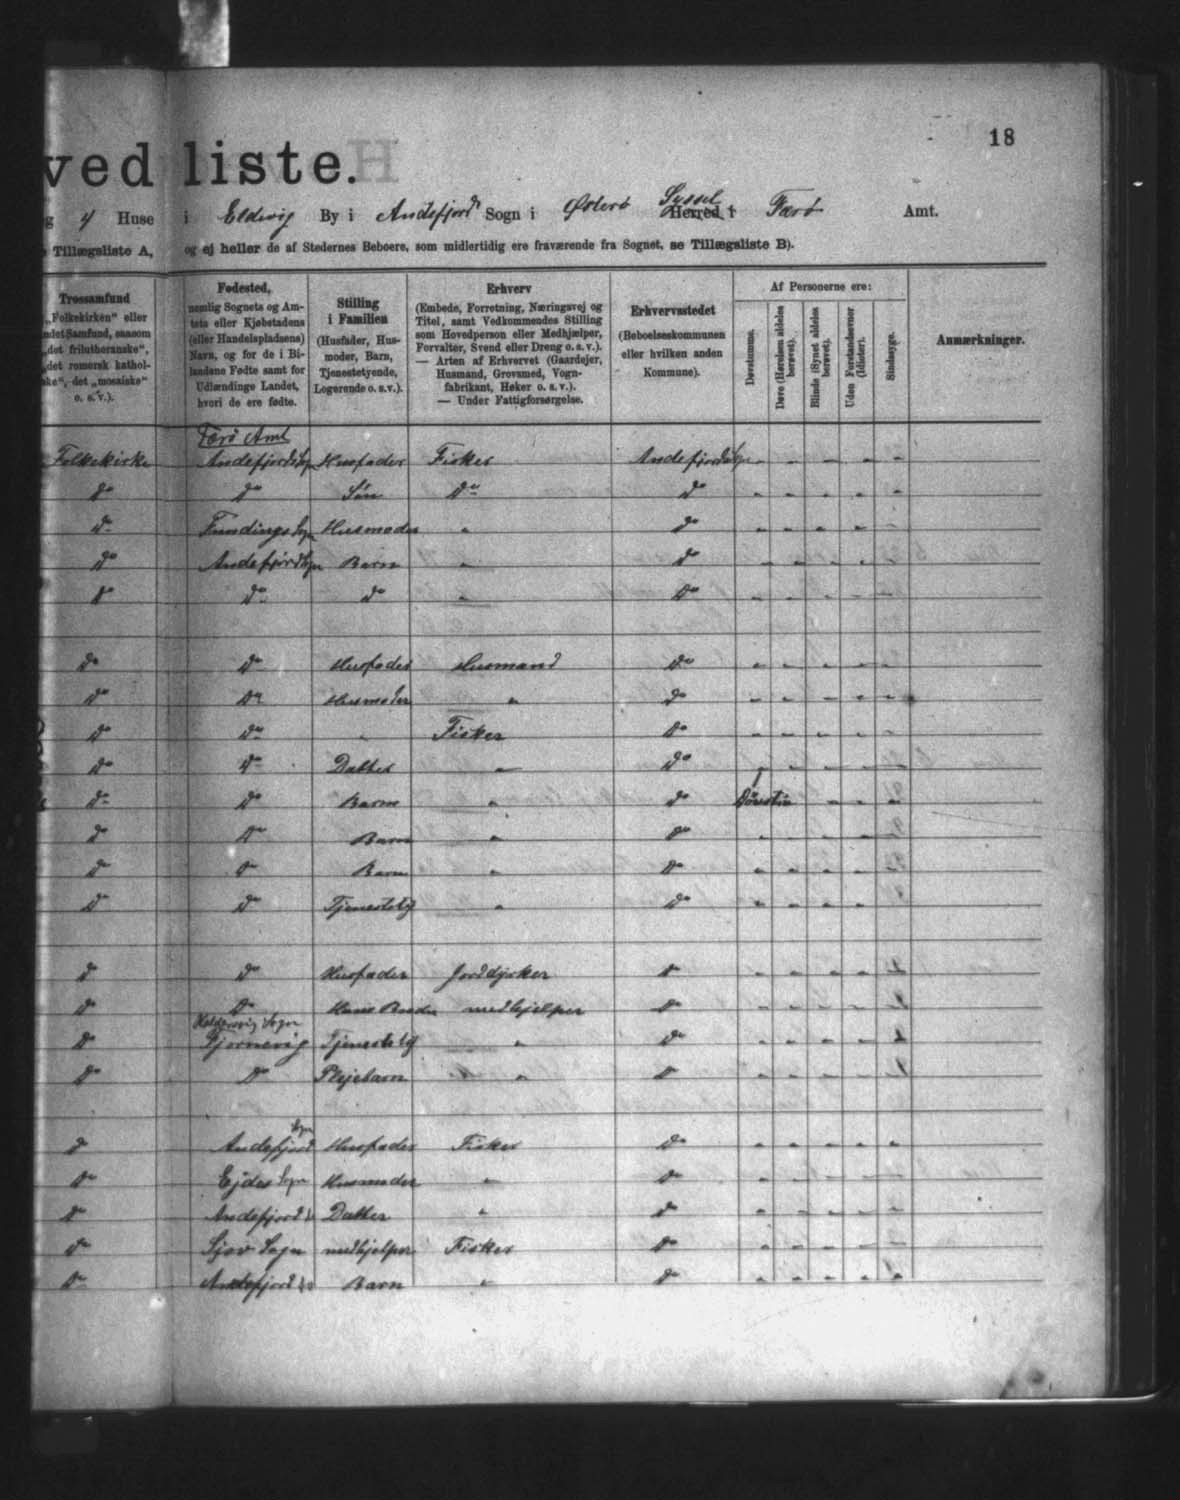 18
ved liste.
g 4 Huse i Eldevig By i Andefjords Sogn i Østerø Syssel Herred i Færø Amt.
Tillægsliste A, og ej heller de af Stedernes Beboere, som midlertidig ere fraværende fra Sognet, se Tillægsliste B).
Trossamfund
„Folkekirken“ eller
andet Samfund, saasom
„det frilutheranske“,
„det romersk kathol-
ske“, det „mosaiske“
o. s. v.).
Fødested,
nemlig Sognets og Am-
tets eller Kjøbstadens
(eller Handelspladsens)
Navn, og for de i Bi-
landene Fødte samt for
Udlændinge Landet,
hvori de ere fødte.
Stilling
i Familien
(Husfader, Hus-
moder, Barn,
Tjenestetyende,
Logerende o. s. v.).
Erhverv
(Embede, Forretning, Næringsvej og
Titel, samt Vedkommendes Stilling
som Hovedperson eller Medhjælper,
Forvalter, Svend eller Dreng o. s. v.).
— Arten af Erhvervet (Gaardejer,
Husmand, Grovsmed, Vogn-
fabrikant, Høker o. s. v.).
— Under Fattigforsørgelse.
Erhvervsstedet
(Beboelseskommunen
eller hvilken anden
Kommune).
Af Personerne ere:
Døvstumme.
Døve (Hørelsen aldeles berøvet).
Blinde (Synet aldeles berøvet).
Uden Forstandsevner (Idioter).
Sindssyge.
Anmærkninger.
Færø Amt
Folkekirke Andefjords Sogn Husfader Fisker Andefjords Sogn - - - - -
Do Do Søn Do Do - - - - -
Do Fundings Sogn Husmoder " Do - - - - -
Do Andefjord Sogn Barn " Do - - - - -
Do Do Do " Do - - - - -
Do Do Husfader Husmand Do - - - - -
Do Do Husmoder " Do - - - - -
Do Do " Fisker Do - - - - -
Do Do Datter " Do - - - - -
Do Do Barn " Do 1 Døvstum - - -
Do Do Barn " Do - - - - -
Do Do Barn " Do - - - - -
Do Do Tjenestety " Do - - - - -
Do Do Husfader Jorddyrker Do - - - - -
Do Do Hans Broder medhjelper Do - - - -
Haldersvig Sogn
Do Tjørnevig Tjenestety " Do - - - -
Do Do Plejebarn " Do - - - -
Do Andefjord Sogn Husfader Fisker Do - - - - -
Do Ejdes Sogn Husmoder " Do - - - - -
Do Andefjord S Datter " Do - - - - -
Do Sjov Sogn medhjelper Fisker Do - - - - -
Do Andefjord S Barn " Do - - - - -